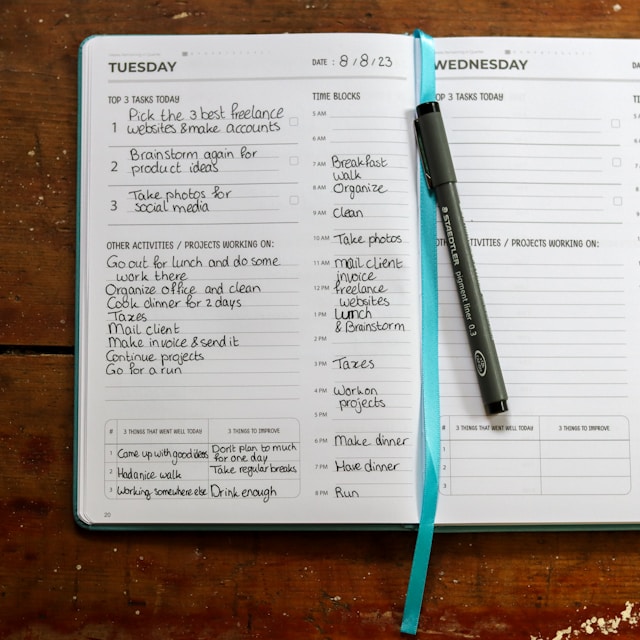 TUESDAY
DATE : 8/8/23
TOP 3 TASKS TODAY
1 Pick the 3 best freelance
websites & make accounts
2 Brainstorm again for
product ideas
3 Take photos for
social media
OTHER ACTIVITIES / PROJECTS WORKING ON:
Go out for lunch and do some
work there
Organize office and clean
Cook dinner for 2 days
Taxes
Mail client
Make invoice & send it
Continue projects
Go for a run
# 3 THINGS THAT WENT WELL TODAY 3 THINGS TO IMPROVE
1 Came up with good ideas Don't plan to much
for one day
2 Had a nice walk Take regular breaks
3 Working somewhere else Drink enough
20
TIME BLOCKS
5 AM
6 AM
7 AM Breakfast
walk
8 AM Organize
9 AM Clean
10 AM Take photos
11 AM Mail client
invoice
12 PM freelance
websites
1 PM Lunch
& Brainstorm
2 PM
3 PM Taxes
4 PM Work on
projects
5 PM
6 PM Make dinner
7 PM Have dinner
8 PM Run
WEDNESDAY
DA
P 3 TASKS TODAY
TIVITIES / PROJECTS WORKING ON:
# 3 THINGS THAT WENT WELL TODAY 3 THINGS TO IMPROVE
1
2
3
STAEDTLER pigment liner 0.3